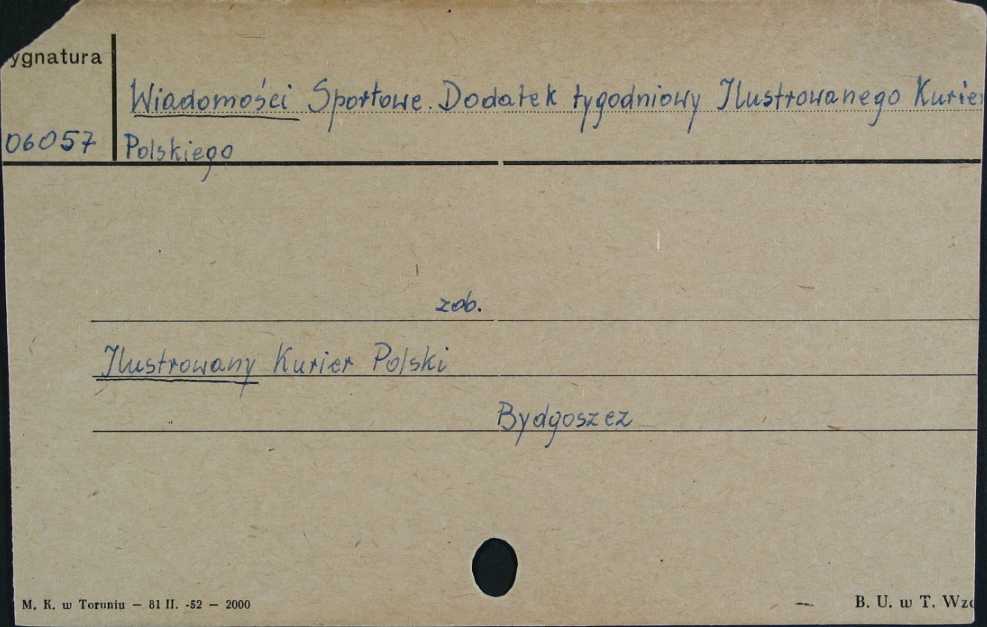 ygnatura
Wiadomości Sportowe. Dodatek tygodniowy Ilustrowanego Kurier
06057 Polskiego
zob.
Ilustrowany Kurier Polski
Bydgoszcz
M. K. w Toruniu — 81 II. -52 — 2000
B. U. w T. Wzo